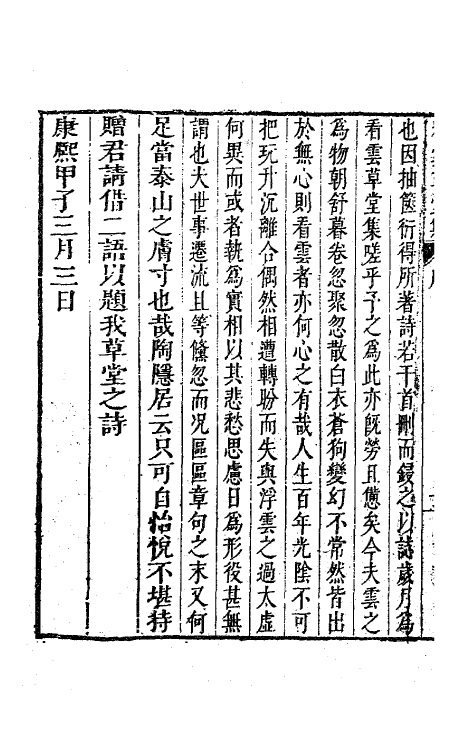 也因抽篋衍得所著詩若干首刪而鋟之以誌歲月爲
看雲草堂集嗟乎予之爲此亦旣勞且憊矣今夫雲之
爲物朝舒暮卷忽聚忽散白衣蒼狗變幻不常然皆出
於無心則看雲者亦何心之有哉人生百年光陰不可
把玩升沉離合偶然相遭轉盼而失與浮雲之過太虛
何異而或者執爲實相以其悲愁思慮日爲形役甚無
謂也大世事遷流且等儵忽而况區區章句之末又何
足當泰山之膚寸也哉陶隱居云只可自怡悅不堪持
贈君請借二語以題我草堂之詩
康熙甲子三月三日